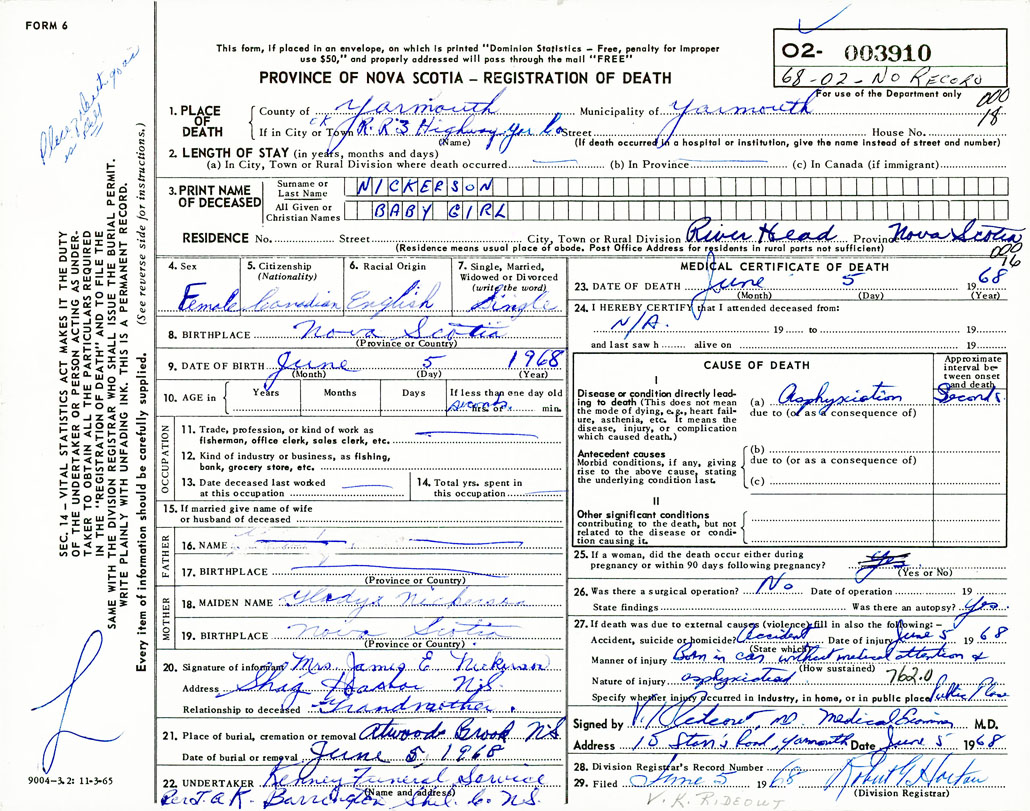 FORM 6
This form, if placed in an envelope, on which is printed "Dominion Statistics – Free, penalty for improper
use $50," and properly addressed will pass through the mail "FREE"
PROVINCE OF NOVA SCOTIA – REGISTRATION OF DEATH
02- 003910
68-02-No Record
For use of the Department only
000
18
Place of death given as is
SEC. 14 – VITAL STATISTICS ACT MAKES IT THE DUTY
OF THE UNDERTAKER OR PERSON ACTING AS UNDER-
TAKER TO OBTAIN ALL THE PARTICULARS REQUIRED
IN THE "REGISTRATION OF DEATH" AND TO FILE THE
SAME WITH THE DIVISION REGISTRAR WHO SHALL ISSUE THE BURIAL PERMIT.
WRITE PLAINLY WITH UNFADING INK. THIS IS A PERMANENT RECORD.
Every item of information should be carefully supplied. (See reverse side for instructions.)
1. PLACE OF DEATH
County of Yarmouth Municipality of Yarmouth
If in City or Town R.R.3 Highway Yar Co Street House No.
(Name) (If death occurred in a hospital or institution, give the name instead of street and number)
2. LENGTH OF STAY (in years, months and days)
(a) In City, Town or Rural Division where death occurred (b) In Province (c) In Canada (if immigrant)
3. PRINT NAME OF DECEASED
Surname or Last Name NICKERSON
All Given or Christian Names BABY GIRL
RESIDENCE No. Street City, Town or Rural Division River Head Province Nova Scotia
(Residence means usual place of abode. Post Office Address for residents in rural parts not sufficient)
000
16
4. Sex Female
5. Citizenship (Nationality) Canadian
6. Racial Origin English
7. Single, Married, Widowed or Divorced (write the word) Single
8. BIRTHPLACE Nova Scotia
(Province or Country)
9. DATE OF BIRTH June 5 1968
(Month) (Day) (Year)
10. AGE in Years Months Days If less than one day old
seconds hrs. or min.
OCCUPATION
11. Trade, profession, or kind of work as
fisherman, office clerk, sales clerk, etc.
12. Kind of industry or business, as fishing,
bank, grocery store, etc.
13. Date deceased last worked
at this occupation
14. Total yrs. spent in
this occupation
15. If married give name of wife
or husband of deceased
FATHER
16. NAME
17. BIRTHPLACE
(Province or Country)
MOTHER
18. MAIDEN NAME Gladys Nickerson
19. BIRTHPLACE Nova Scotia
(Province or Country)
20. Signature of informant Mrs. James E Nickerson
Address Shag Harbor N.S.
Relationship to deceased Grandmother.
21. Place of burial, cremation or removal Atwoods Brook NS
Date of burial or removal June 5, 1968
22. UNDERTAKER Kenney Funeral Service
(Name and address)
Per J.A.K. Barrington Shel. Co. N.S.
9004-3.2: 11-3-65
MEDICAL CERTIFICATE OF DEATH
23. DATE OF DEATH June 5 1968
(Month) (Day) (Year)
24. I HEREBY CERTIFY that I attended deceased from:
N/A. 19 to 19
and last saw h alive on 19
CAUSE OF DEATH
Approximate interval between onset and death
I
Disease or condition directly lead-
ing to death (This does not mean
the mode of dying, e.g., heart fail-
ure, asthenia, etc. It means the
disease, injury, or complication
which caused death.)
(a) Asphyxiation Seconds.
due to (or as a consequence of)
Antecedent causes
Morbid conditions, if any, giving
rise to the above cause, stating
the underlying condition last.
(b)
due to (or as a consequence of)
(c)
II
Other significant conditions
contributing to the death, but not
related to the disease or condi-
tion causing it.
25. If a woman, did the death occur either during
pregnancy or within 90 days following pregnancy?
(Yes or No)
26. Was there a surgical operation? No Date of operation 19
State findings Was there an autopsy? Yes.
27. If death was due to external causes (violence) fill in also the following: –
Accident, suicide or homicide? Accident Date of injury June 5 1968
(State which)
Manner of injury Born in car without medical attention &
(How sustained)
Nature of injury asphyxiated 762.0
Specify whether injury occurred in industry, in home, or in public place Public Place
Signed by V.K. Rideout, MD. Medical Examiner M.D.
Address 10 Road, Yarmouth Date June 5 1968
28. Division Registrar's Record Number
29. Filed June 5 1968 Robert Horton
(Division Registrar)
V. K. RIDEOUT